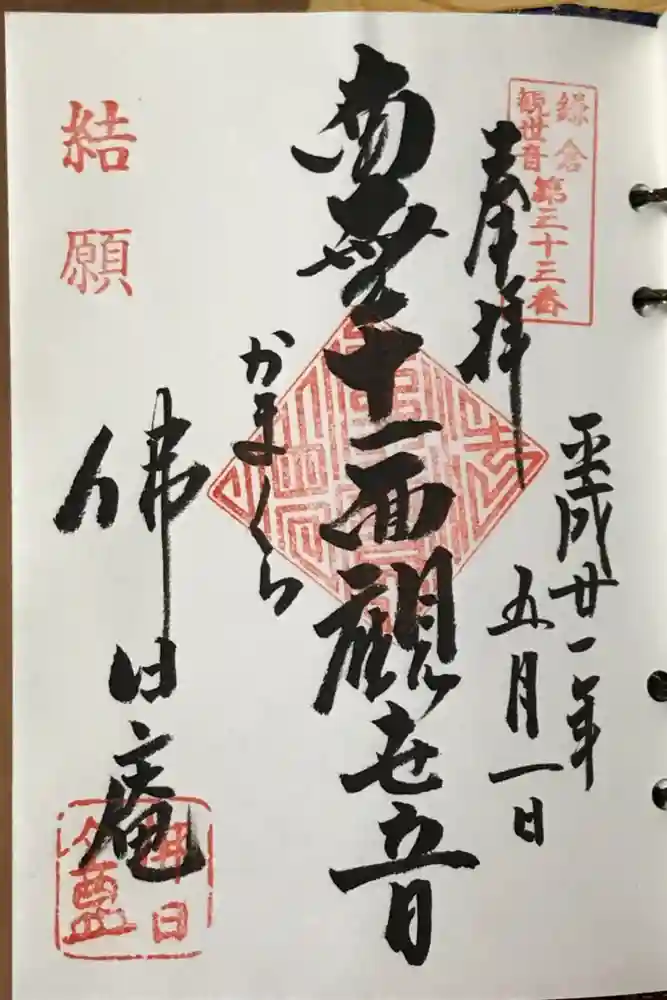 鎌倉
観世音
第三十三番
奉拝
平成廿一年
五月一日
南無十一面観世音
かまくら
佛日庵
結願